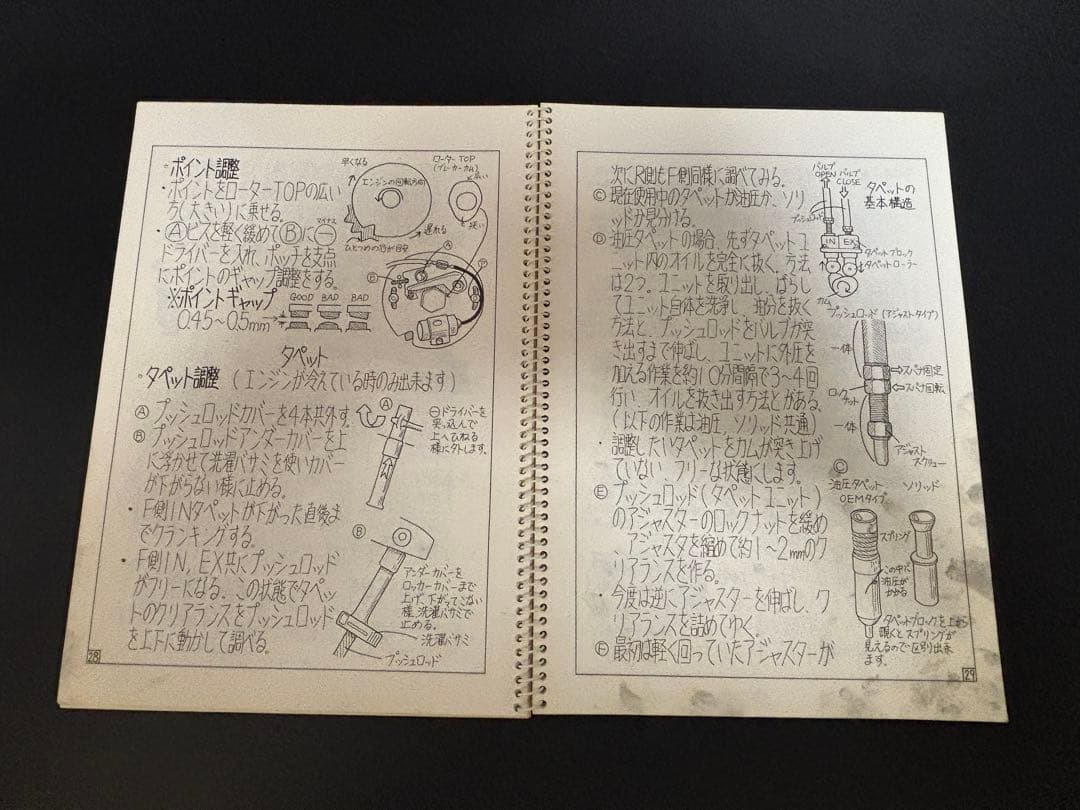 ・ポイント調整
・ポイントをローターTOPの広い
方(大きい)に乗せる。
・Ⓐビスを軽く緩めてⒷに㊀
マイナス
ドライバーを入れ、ポッチを支点
にポイントのギャップ調整をする。
※ポイントギャップ
0.45~0.5mm→
GOOD BAD BAD
早くなる
エンジンの回転方向
遅れる
ひとつめの刃が目安
ローターTOP
(ブレーカーカム)
広い
狭い
Ⓐ
Ⓑ
タペット
・タペット調整(エンジンが冷えている時のみ出来ます)
Ⓐ プッシュロッドカバーを4本共外す。
Ⓑ プッシュロッドアンダーカバーを上
に浮かせて洗濯バサミを使いカバー
が下がらない様に止める。
・F側INタペットが下がった直後ま
でクランキングする。
・F側IN, EX共にプッシュロッド
がフリーになる。この状態でタペッ
トのクリアランスをプッシュロッド
を上下に動かして調べる。
Ⓐ
㊀ドライバーを
突っ込んで
上へひねる
様に外します。
Ⓑ
アンダーカバーを
ロッカーカバーまで
上げ、下がってこない
様、洗濯バサミで
止める。
洗濯バサミ
プッシュロッド
28
次にR側もF側同様に調べてみる。
Ⓒ 現在使用中のタペットが油圧か、ソリ
ッドか見分ける。
Ⓓ 油圧タペットの場合、先ずタペットユ
ニット内のオイルを完全に抜く。方法
は2つ。ユニットを取り出し、ばらし
てユニット自体を洗浄し、油分を抜く
方法と、プッシュロッドをバルブが突
き出すまで伸ばし、ユニットに外圧を
加える作業を約10分間隔で3~4回
行い、オイルを抜き出す方法とがある。
(以下の作業は油圧、ソリッド共通)
・調整したいタペットをカムが突き上げ
ていない フリーな状態にします。
Ⓔ プッシュロッド(タペットユニット)
のアジャスターのロックナットを緩め
、アジャスタを縮めて約1~2mmのク
リアランスを作る。
・今度は逆にアジャスターを伸ばし、ク
リアランスを詰めてゆく
Ⓕ 最初は軽く回っていたアジャスターが
バルブ
OPEN
バルブ
CLOSE
タペットの
基本構造
プッシュロッド
IN EX
タペットブロック
タペットローラー
カム
プッシュロッド(アジャストタイプ)
一体
スパナ固定
スパナ回転
ロックナット
一体
アジャスト
スクリュー
油圧タペット
OEMタイプ
ソリッド
スプリング
この中に
油圧が
かかる
タペットブロックを上から
覗くとスプリングが
見えるので区別出来
ます。
29